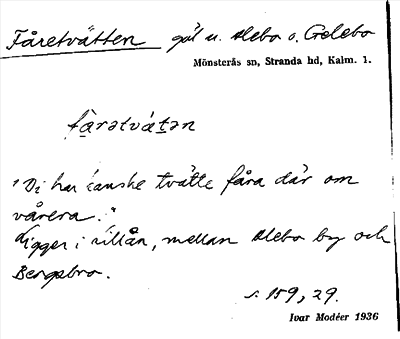 Fåretvätten göl u. Alebo o. Gelebo
Mönsterås sn, Stranda hd, Kalm. l.
fa̱rətvätən
"Di har canske tvätte fåra där om
vårera."
Ligger i Lillån, mellan Alebo by och
Bergsbro.
s. 159, 29.
Ivar Modéer 1936